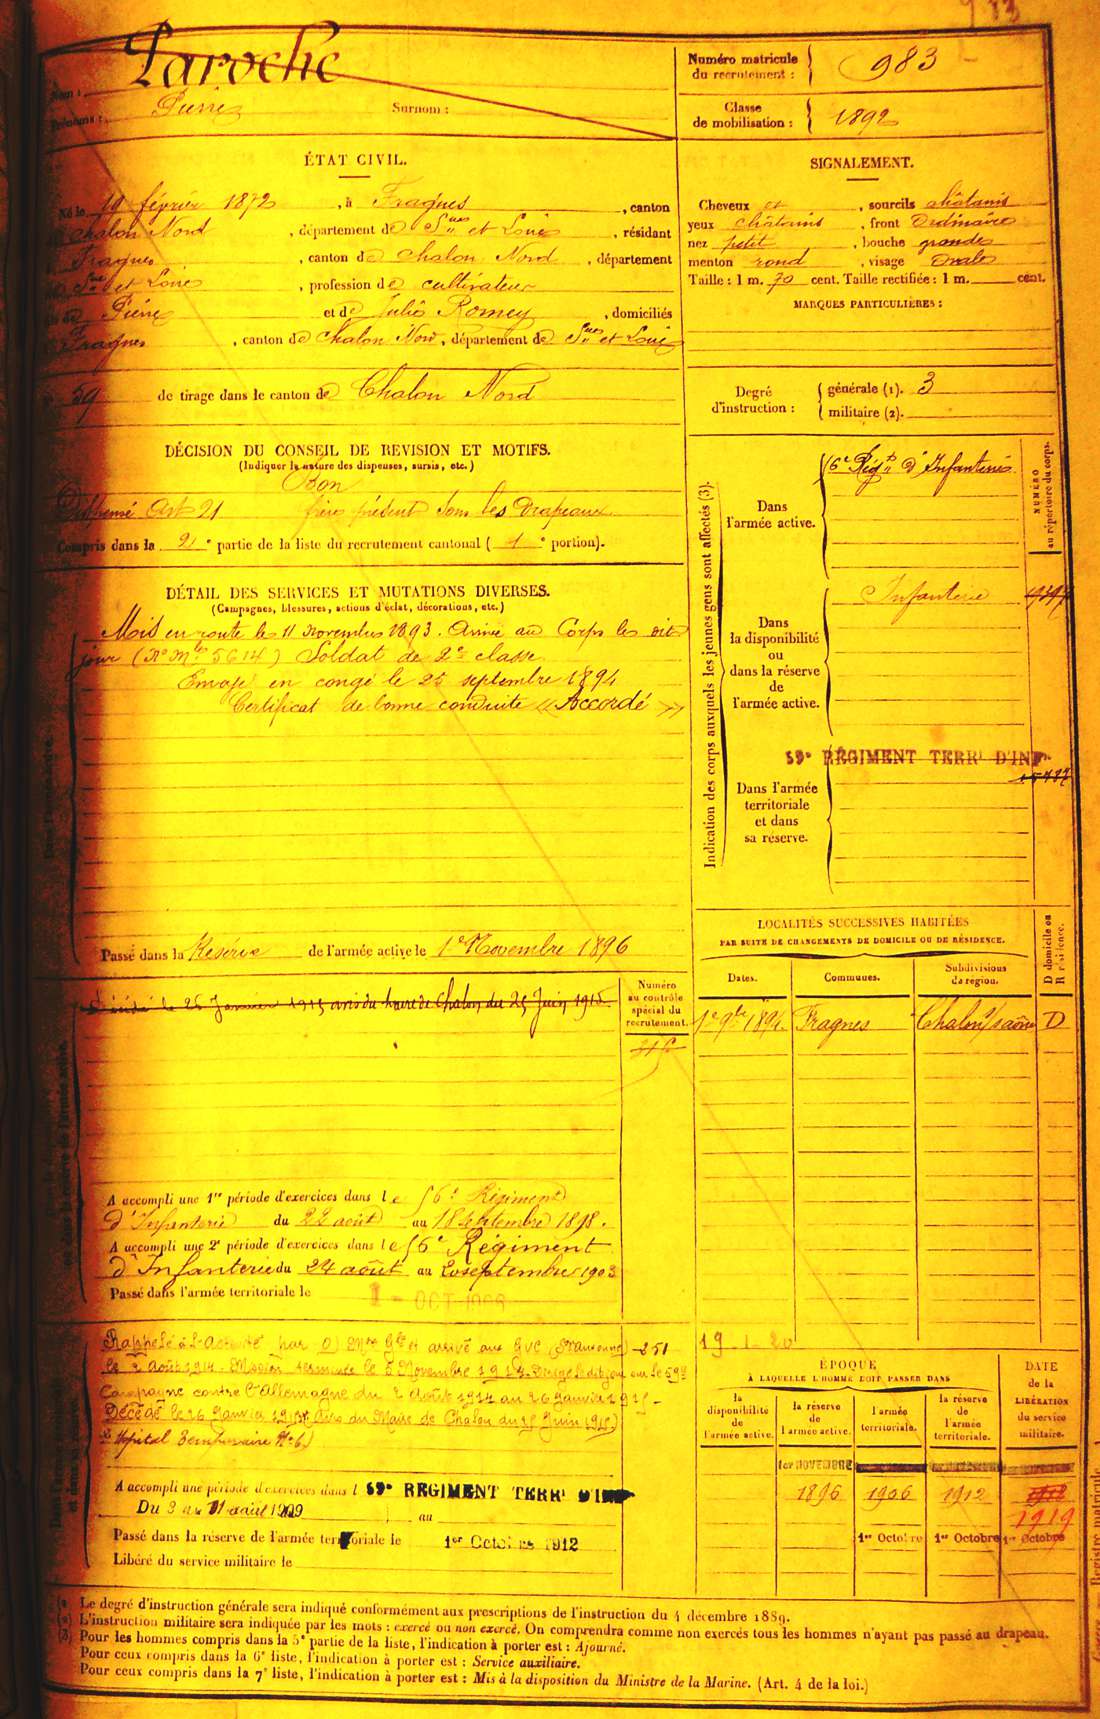 983
Laroche
Nom :
Prénoms : Pierre Surnom :
Numéro matricule
du recrutement : 983
Classe
de mobilisation : 1892
ÉTAT CIVIL.
Né le 19 février 1872, à Fragnes, canton
Chalon Nord, département de S.ne et Loire, résidant
Fragnes, canton de Chalon Nord, département
S.ne et Loire, profession de cultivateur
de Pierre et de Julie Romey, domiciliés
Fragnes, canton de Chalon Nord, département de S.ne et Loire
59 de tirage dans le canton de Chalon Nord
SIGNALEMENT.
Cheveux et, sourcils châtains
yeux châtains, front Ordinaire
nez petit, bouche grande
menton rond, visage Ovale
Taille : 1 m. 70 cent. Taille rectifiée : 1 m. cent.
MARQUES PARTICULIÈRES :
Degré
d'instruction : générale (1). 3
militaire (2).
DÉCISION DU CONSEIL DE REVISION ET MOTIFS.
(Indiquer la nature des dispenses, sursis, etc.)
Bon
Dispensé Art 21 frère présent sous les Drapeaux
Compris dans la 2e partie de la liste du recrutement cantonal ( 1e portion).
DÉTAIL DES SERVICES ET MUTATIONS DIVERSES.
(Campagnes, blessures, actions d'éclat, décorations, etc.)
Mis en route le 11 Novembre 1893. Arrivé au Corps le dit
jour (No Mle 5614) Soldat de 2e classe
Envoyé en congé le 25 septembre 1894
Certificat de bonne conduite « Accordé »
Passé dans la Réserve de l'armée active le 1er Novembre 1896
Indication des corps auxquels les jeunes gens sont affectés (3).
NUMÉRO
au répertoire du corps.
Dans
l'armée active.
56e Régt d'Infanterie
Dans
la disponibilité
ou
dans la réserve
de
l'armée active.
Infanterie
59e RÉGIMENT TERRl D'INFie
Dans l'armée
territoriale
et dans
sa réserve.
LOCALITÉS SUCCESSIVES HABITÉES
PAR SUITE DE CHANGEMENTS DE DOMICILE OU DE RÉSIDENCE.
Dates. Communes. Subdivisions
de région.
D domicile ou
R résidence.
1er 9bre 1894 Fragnes Chalon s/saône D
Décédé le 26 Janvier 1915 avis du maire de Chalon du 25 Juin 1915
Numéro
au contrôle
spécial du
recrutement.
A accompli une 1re période d'exercices dans le 56e Régiment
d'Infanterie du 22 août au 18 septembre 1898.
A accompli une 2e période d'exercices dans le 56e Régiment
d'Infanterie du 24 août au 20 septembre 1903
Passé dans l'armée territoriale le 1er OCT 1906
Rappelé à l'Activité par O Mon Gle et arrivé aux GVC 251
le 2 Août 1914. Mission terminée le 5 Novembre 1914. Dirigé le dit jour sur le 59e
Campagne contre l'Allemagne du 2 Août 1914 au 26 Janvier 1915
Décédé le 26 Janvier 1915. Avis du Maire de Chalon du 25 Juin 1915
Hôpital Temporaire No 6)
19-1-20
A accompli une période d'exercices dans l 59e RÉGIMENT TERRl D'INFie
Du 3 au 11 avril 1909 au
Passé dans la réserve de l'armée territoriale le 1er Octobre 1912
Libéré du service militaire le
ÉPOQUE
À LAQUELLE L'HOMME DOIT PASSER DANS
la
disponibilité
de
l'armée active.
la réserve
de
l'armée active.
l'armée
territoriale.
la réserve
de
l'armée
territoriale.
DATE
de la
LIBÉRATION
du service
militaire.
1er NOVEMBRE
1896 1906 1912 1918
1919
1er Octobre 1er Octobre 1er Octobre
(1) Le degré d'instruction générale sera indiqué conformément aux prescriptions de l'instruction du 4 décembre 1889.
(2) L'instruction militaire sera indiquée par les mots : exercé ou non exercé. On comprendra comme non exercés tous les hommes n'ayant pas passé au drapeau.
(3) Pour les hommes compris dans la 5e partie de la liste, l'indication à porter est : Ajourné.
Pour ceux compris dans la 6e liste, l'indication à porter est : Service auxiliaire.
Pour ceux compris dans la 7e liste, l'indication à porter est : Mis à la disposition du Ministre de la Marine. (Art. 4 de la loi.)